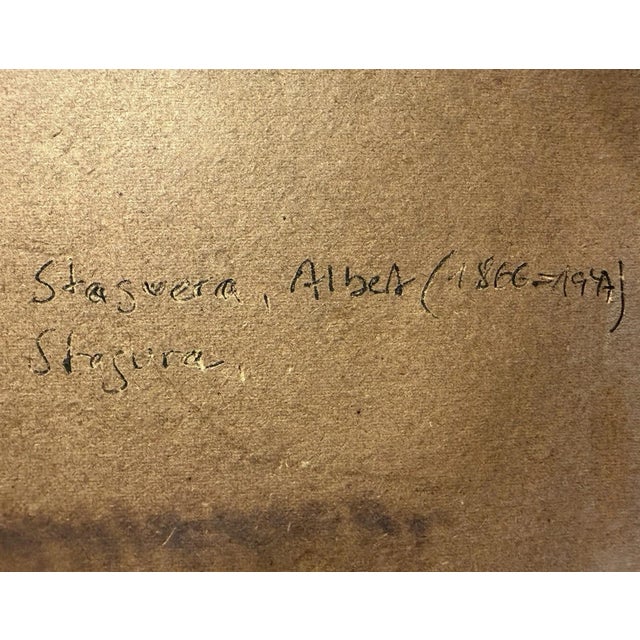 Staguera, Albert (1866=1947)
Stagura,